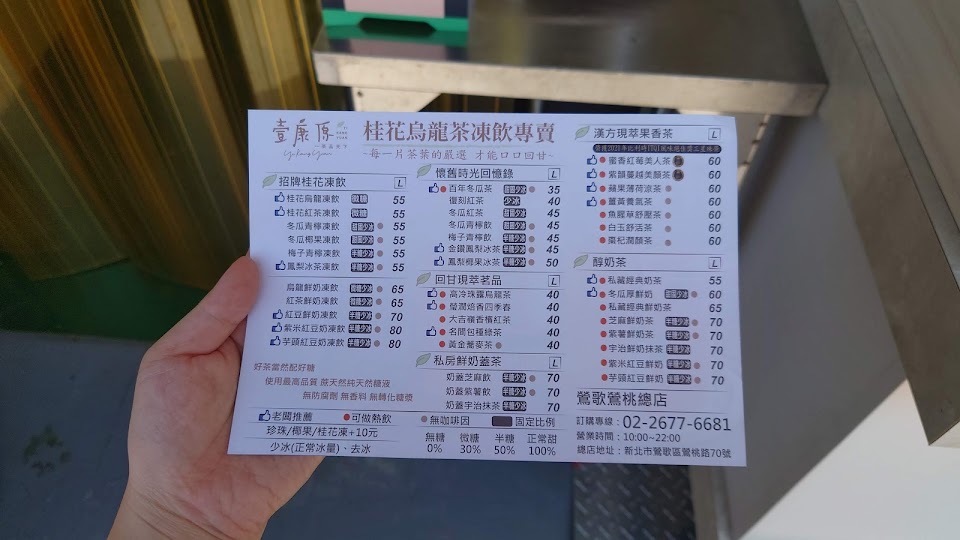 壹康原
Yi Kang Yuan
桂花烏龍茶凍飲專賣
~每一片茶葉的嚴選 才能口口回甘~
招牌桂花凍飲 L
桂花烏龍凍飲 微糖 55
桂花紅茶凍飲 微糖 55
冬瓜青檸凍飲 55
冬瓜椰果凍飲 55
梅子青檸凍飲 半糖少冰 55
鳳梨冰茶凍飲 半糖少冰 55
烏龍鮮奶凍飲 65
紅茶鮮奶凍飲 65
紅豆鮮奶凍飲 半糖少冰 70
紫米紅豆奶凍飲 半糖少冰 80
芋頭紅豆奶凍飲 半糖少冰 80
好茶當然配好糖
使用最高品質 蔗天然純天然糖液
無防腐劑 無香料 無轉化糖漿
懷舊時光回憶錄 L
百年冬瓜茶 35
復刻紅茶 少冰 40
冬瓜紅茶 45
冬瓜青檸飲 45
梅子青檸飲 半糖少冰 45
金鑽鳳梨冰茶 半糖少冰 45
鳳梨椰果冰茶 半糖少冰 50
回甘現萃茗品 L
高冷珠露烏龍茶 40
瑩潤焙香四季春 40
大吉嶺香檳紅茶 40
名間包種綠茶 40
黃金蕎麥茶 40
私房鮮奶蓋茶 L
奶蓋芝麻飲 半糖少冰 70
奶蓋紫薯飲 半糖少冰 70
奶蓋宇治抹茶 半糖少冰 70
漢方現萃果香茶 L
榮獲2020年比利時iTQi風味絕佳獎三星機等
蜜香紅莓美人茶 60
紫韻蔓越美顏茶 60
蘋果薄荷涼茶 60
薑黃養氣茶 60
魚腥草舒壓茶 60
白玉舒活茶 60
棗杞潤顏茶 60
醇奶茶 L
私藏經典奶茶 55
冬瓜厚鮮奶 60
私藏經典鮮奶茶 65
芝麻鮮奶茶 半糖少冰 70
紫薯鮮奶茶 半糖少冰 70
宇治鮮奶抹茶 半糖少冰 70
紫米紅豆鮮奶 半糖少冰 70
芋頭紅豆鮮奶 半糖少冰 70
老闆推薦 可做熱飲 無咖啡因 固定比例
珍珠/椰果/桂花凍+10元
少冰(正常冰量)、去冰
無糖 微糖 半糖 正常甜
0% 30% 50% 100%
鶯歌鶯桃總店
訂購專線：02-2677-6681
營業時間：10:00~22:00
總店地址：新北市鶯歌區鶯桃路70號